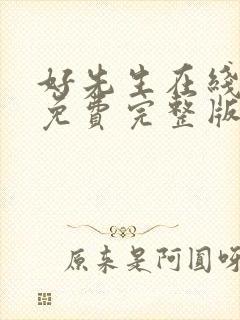 好先生在线
免费完整版
原来是阿圆呀